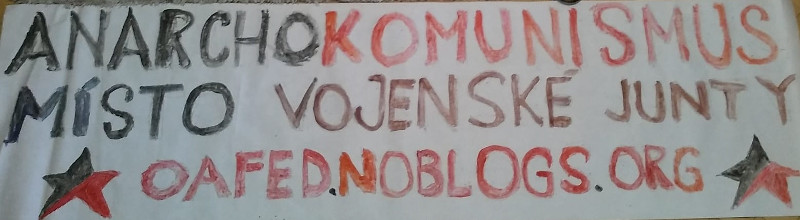 ANARCHOKOMUNISMUS
MÍSTO VOJENSKÉ JUNTY
OAFED.NOBLOGS.ORG